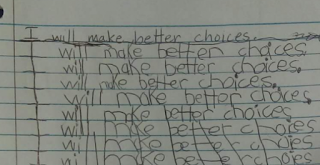 I will make better choices.
I will make better choices
I will make better choices.
I will make better choices.
I will make better choices.
I will make better choices
I will make better choices
I will make better choices
will make better choices